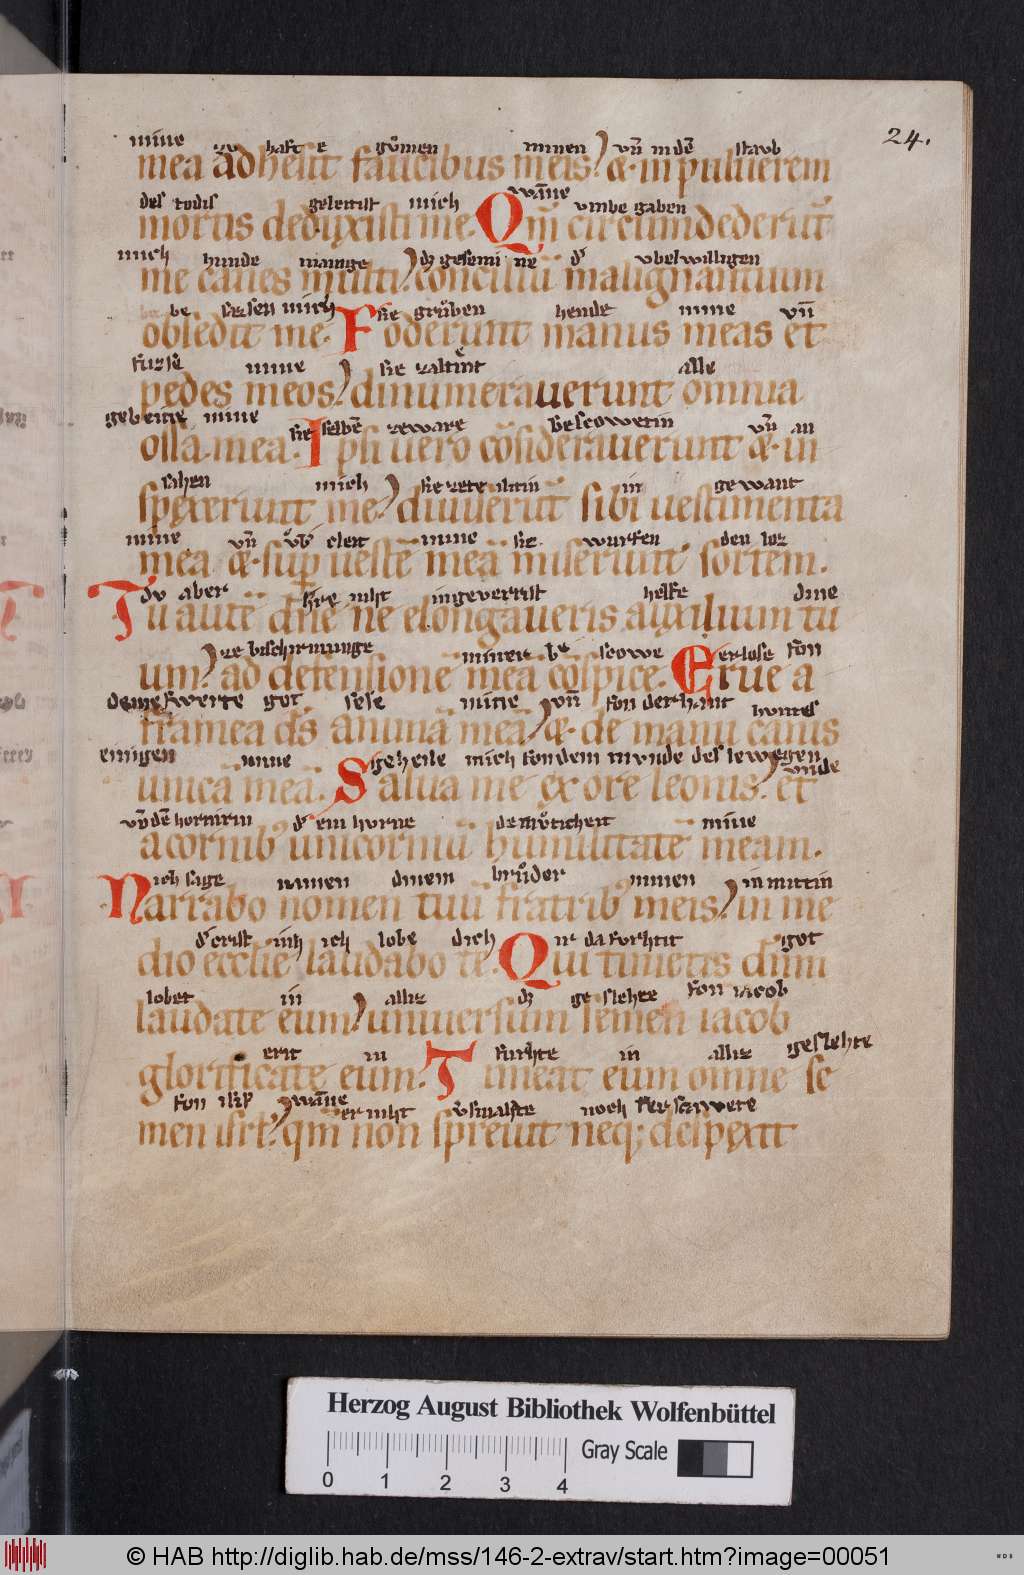 24.
mine ge hafte gůmen minen vn̄ in dē staub
mea adhesit faucibus meis. & in puluerem
des todis geleitist mich wāne vmbe gaben
mortis deduxisti me. Qm̄ circumdederut̄
mich hunde manige dz gesemi ne d' vbelwilligen
me canes multi. conciliū malignantium
be sazsen mich sie grůben hende mine vn̄
obsedit me. Foderunt manus meas et
fuzse mine sie zaltint alle
pedes meos. dinumerauerunt omnia
gebeine mine sie selbē zeware Bescowetin vn̄ an
ossa mea. Ipsi uero cōsiderauerunt & in
sahen mich sie zeteiltin in gewant
spexerunt me. diuiserūt sibi uestimenta
mine vn̄ vb' cleit mine sie wurfen den loz
mea & sup uestē meā miserunt sortem.
dv aber niht ingeverrist helfe dine
Tu autē dn̄e ne elongaueris auxilium tu
ze bischirmunge miner be scowe erlose fon
um. ad defensionē meā cōspice. Erue a
deme swerte got sele mine vn̄ fon der hant huntes
framea ds̄ animā meā. & de manu canis
einigen mine geheile mich fon dem munde des lewegen vnde
unicā meā. Salua me ex ore leonis. et
von dē hornirin d' einhurne demůticheit mine
a cornib' unicorniū humilitatē meam.
ich sage namen dinem brůder minen in mittin
Narrabo nomen tuū fratrib' meis. in me
d' crist inh ich lobe dich ir da forhtit got
dio ecclie laudabo te. Qui timetis dn̄m
lobet in alliz dz geslehte fon iacob
laudate eum. uniuersum semen iacob
erit in furhte in alliz geslehte
glorificate eum. Timeat eum omne se
fon isrł wāne er niht v'smahte noch
men isrł. qm̄ non spreuit neq; despexit
Herzog August Bibliothek Wolfenbüttel
Gray Scale
0 1 2 3 4
© HAB http://diglib.hab.de/mss/146-2-extrav/start.htm?image=00051
WDB